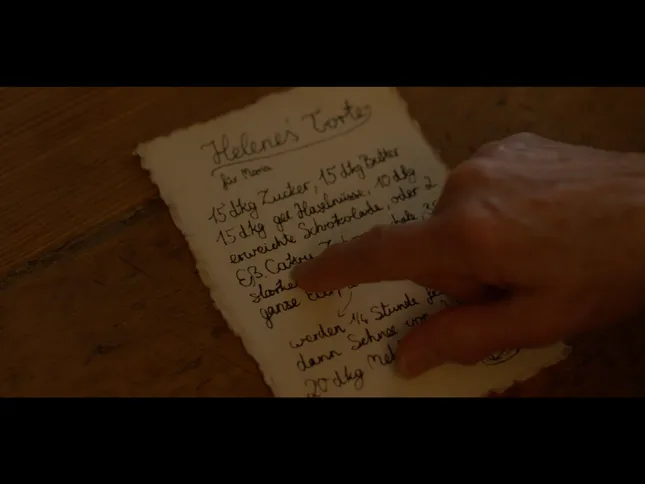 Helene's Torte
für Mama
15 dkg Zucker, 15 dkg Butter
15 dkg ger Haselnüsse, 10 dkg
erweichte Schokolade, oder 2
EB. Cakao
starke
ganze
werden 1/4 Stunde
dann Schnee von
20 dkg